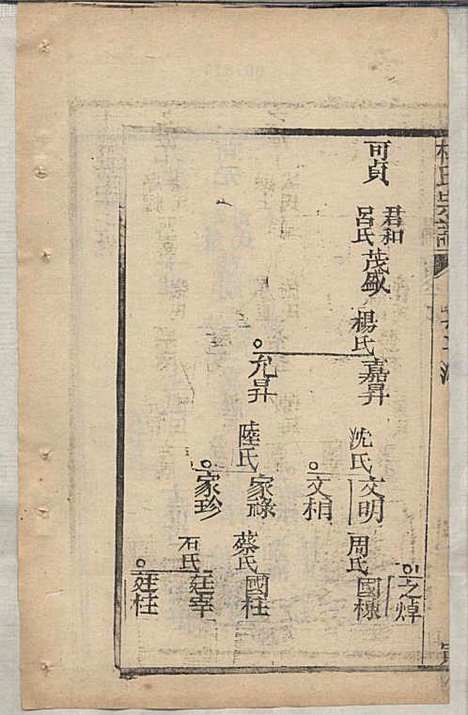 可貞
君和
呂氏
茂盛
楊氏
嘉昇
允昇
沈氏
陸氏
文明
文相
家祿
家珍
周氏
蔡氏
石氏
之焯
國棟
國柱
廷幸
廷柱
氏宗譜